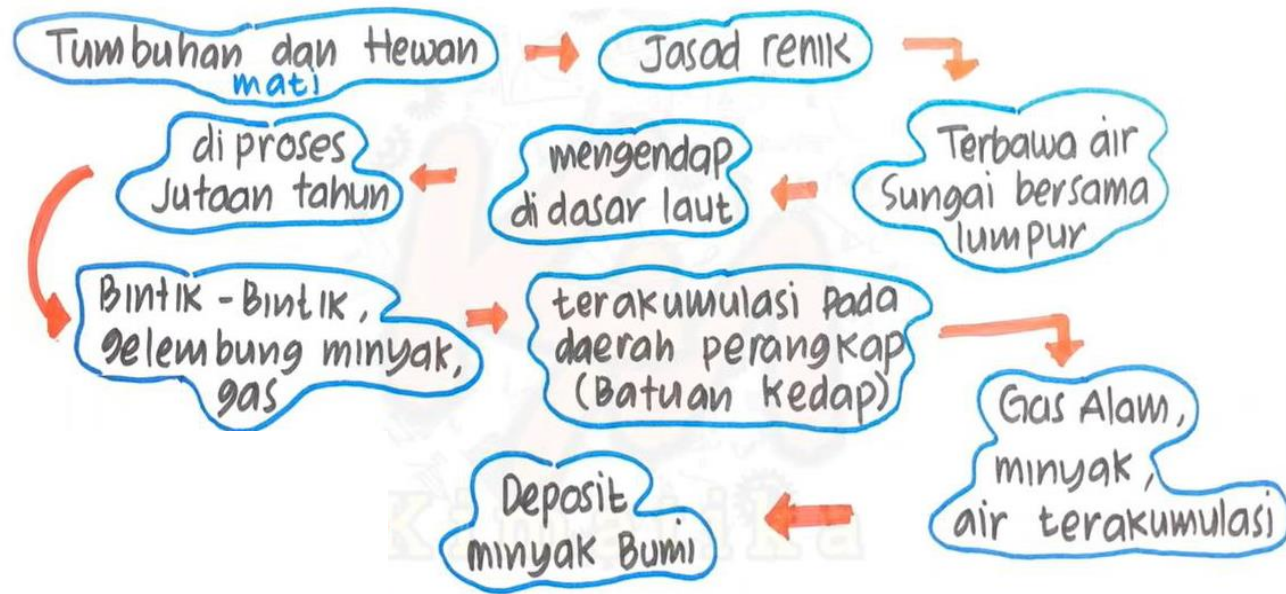 Tumbuhan dan Hewan
mati
Jasad renik
Terbawa air
Sungai bersama
lumpur
mengendap
di dasar laut
di proses
Jutaan tahun
Bintik-Bintik,
gelembung minyak,
gas
terakumulasi pada
daerah perangkap
(Batuan Kedap)
Gas Alam,
minyak,
air terakumulasi
Deposit
minyak Bumi
Kimatika